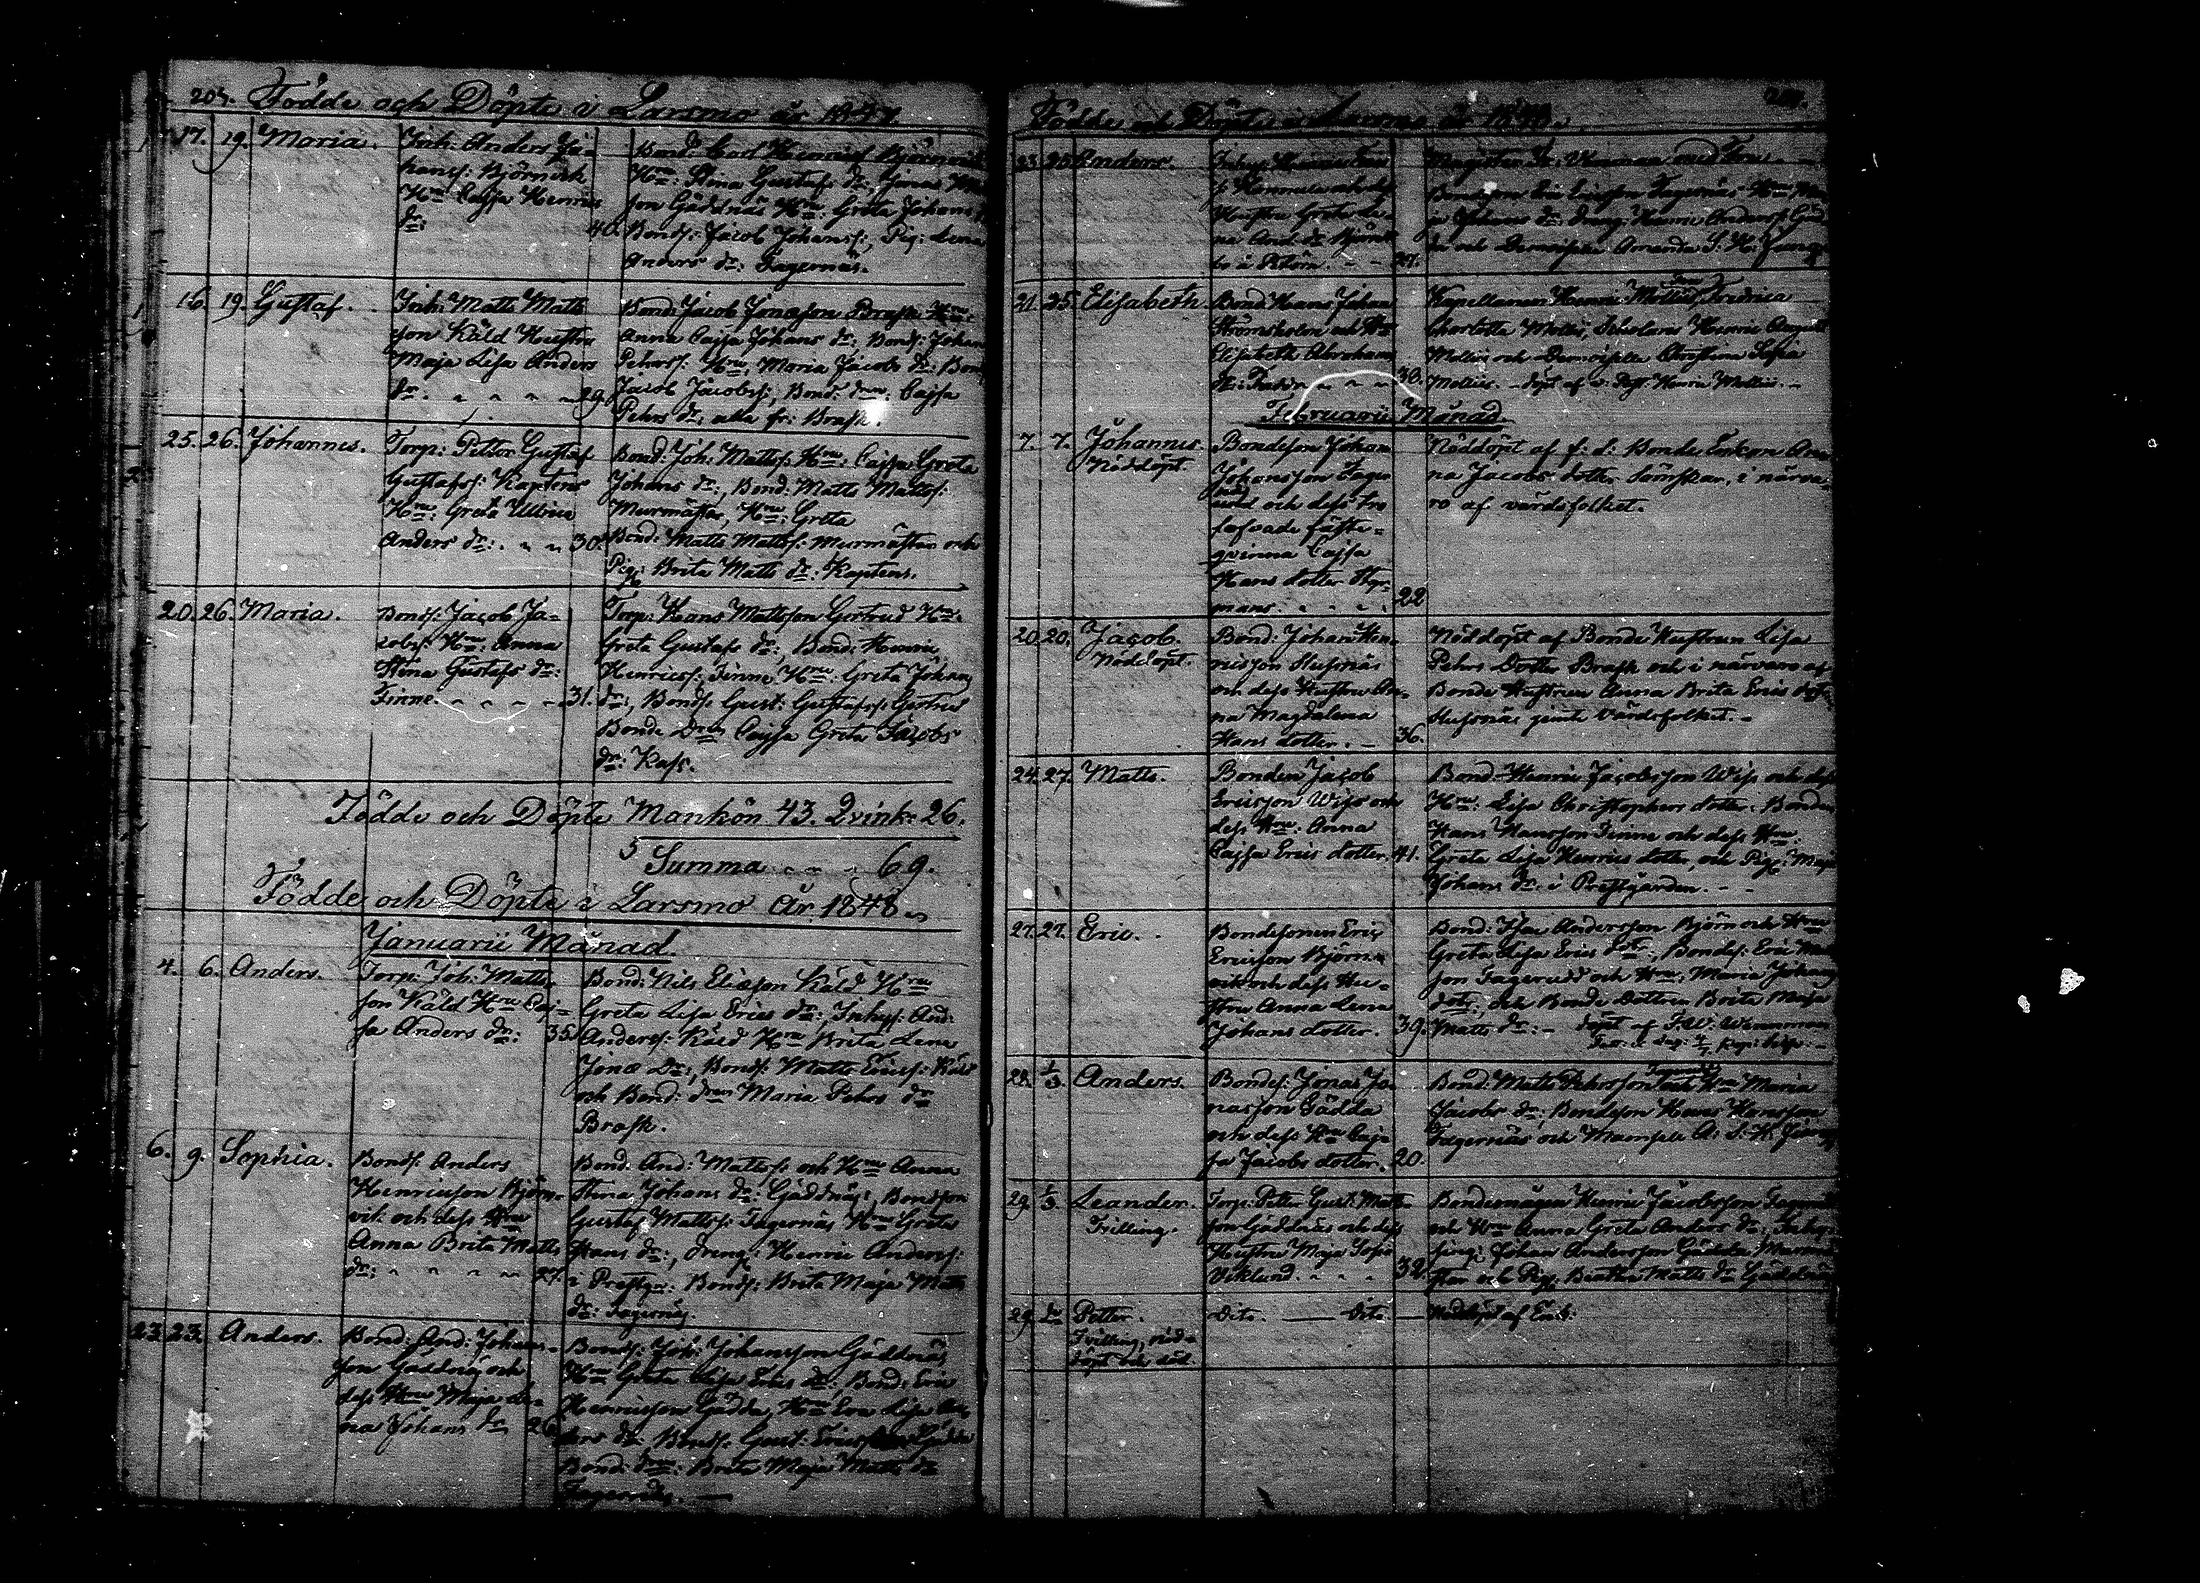 203. Födde och Döpte i Larsmo år 1847.
17. 19. Maria. Inh: Anders Jo=
hanss: Björnvik
Hru Cajsa Henrics
dr: 40.
Bond: Carl Henricss Björnvik
Hru: Stina Gustafs dr: Jonas
son Gäddnäs Hru: Greta Johans
Bonds: Jacob Johanss:, Pig: Lena
Anders dr: Fagernäs.
16. 19. Gustaf. Inh: Matts Matts
son Käld Hustru
Maja Lisa Anders
dr. 29.
Bond: Jacob Jonasson Brask Hru:
Anna Cajsa Johans dr:, Bonds: Johan
Pehrss: Hru, Maria Jacobs dr: Bond
Jacob Jacobss:, Bond: drn: Cajsa
Pehrs dr: alla fr: Brask.
25. 26. Johannes. Torp: Petter Gustaf
Gustafss: Kaptens
Hru: Greta Ulrica
Anders dr: 30.
Bond: Joh: Mattss: Hru: Cajsa Greta
Johans dr:, Bond: Matts Mattss:
Murmästar, Hru: Greta
Bond: Matts Mattss: Murmästar och
Pig: Brita Matts dr: Kaptens.
20. 26. Maria. Bonds: Jacob Ja=
cobss: Hru: Anna
Stina Gustafs dr:
Finne. 31.
Torp: Hans Mattsson Gertrud Hru:
Greta Gustafs dr:, Bond: Henric
Henricss: Finne Hru: Greta Johans
dr:, Bonds: Gust: Gustafss: Gertrud
Bonde Drn Cajsa Greta Jacobs
dr: Kass.
Födde och Döpte Mankön 43. Qvink: 26.
Summa 69.
Födde och Döpte i Larsmo År 1848
Januarii Månad
4. 6. Anders. Torp: Joh: Matts
son Käld Hru Caj=
sa Anders dr: 35.
Bond: Nils Eliasson Käld Hru
Greta Lisa Erics dr:, Inhyss: And:
Anderss: Käld Hru Brita Lena
Jonæ Dr:, Bonds: Matts Ericss: Käld
och Bond: drn Maria Pehrs dr
Brask.
6. 9. Sophia. Bonds: Anders
Henricsson Björn=
vik och dess Hru
Anna Brita Matts
dr: 27.
Bond: And: Mattss: och Hru Anna
Stina Johans dr: Gäddnäs, Bondson
Gustaf Mattss: Fagernäs Hru Greta
Hans dr:, Dreng: Henric Anderss:
i Prestg: Bonds: Brita Maja Matts
dr: Fagernäs.
23. 23. Anders. Bond: And: Johans=
son Gäddnäs och
dess Hru Maja Le=
na Johans dr 26.
Bonds: Joh: Johansson Gäddnäs
Hru Greta Lisa Erics dr:, Bond: Eric
Henricsson Gädda, Hru Eva Lisa An=
ders dr Bonds: Gust: Ericsson Gädda
Bond: drn: Brita Maja Matts dr
Fagernäs.
Födde och Döpte i Larsmo år 1848.
23. 25. Anders.
Hustru Greta Le=
na And: dr Björk 27.
Bondeson Eric Ericsson Fagernäs Hru
21. 25. Elisabeth. Bond Hans Johans
Strömsholm och Hru
Elisabeth Abrahams
dr: 30.
Kapellanen Henric Mollii Fru Fredrica
Charlotta Mollii, Scholaren Henric August
Mollius och Demoiselle Christina Sofia
Mollius. - döpt af v. Past. Henric Mollii.
Februarii Månad
7. 7. Johannes Nöddöpt. Bondeson Johan
Johansson Fager
näs och dess tro
lofvade fäste=
qvinna Cajsa
Hans dotter Styr=
mans 22
Nöddöpt af f. d. Bonde Enkan An
na Jacobs dotter Sämskar, i närva
ro af värdsfolket.
20. 20. Jacob. Nöddöpt. Bond: Johan Hen=
ricsson Hussnäs
och dess Hustru An=
na Magdalena
Hans dotter. 36.
Nöddöpt af Bonde Hustrun Lisa
Pehrs Dotter Brask och i närvaro af
Bonde Hustrun Anna Brita Erics dotter
Hussnäs jemte Värdsfolket.
24. 27. Matts. Bonden Jacob
Ericsson Wiss och
dess Hru: Anna
Cajsa Erics dotter. 41.
Bond: Henric Jacobsson Wiss och dess
Hru: Lisa Christophers dotter. Bonden
Hans Hansson Finne och dess Hru:
Greta Lisa Henrics dotter, och Pig: Maja
Johans dr: i Prestgården.
27. 27. Eric. Bondesonen Eric
Ericsson Björn=
vik och dess Hu=
stru Anna Lena
Johans dotter. 39.
Bond: Isac Andersson Björn och Hru
Greta Lisa Erics Dot:, Bondes: Eric Matts
son Fagerudd och Hru: Maria Johans
dot:, och Bonde Dottren Brita Maja
Matts dr: - döpt af F.W. Wennman
28. 1/3. Anders. Bondes: Jonas Jo=
nasson Gädda
och dess Hru Caj=
sa Jacobs dotter. 20.
Bond: Matts Pehrsson och Hru Maria
Jacobs dr; Bondeson Hans Hansson
Fagernäs och Mamsell A: S: H:
29. 1/3. Leander. Trilling. Torp: Petter Gust: Matts
son Gäddnäs och dess
Hustru Maja Sofia
Viklund. 32.
Bondemågen Henric Jacobsson
och Hru Anna Greta Anders dr;
Johan Andersson Gädda
och Pig: Beatha Matts dr Gäddnäs
29. Do Petter. Dito. Dito Nöddöpt af Enk:
Trilling, nöd=
döpt och död